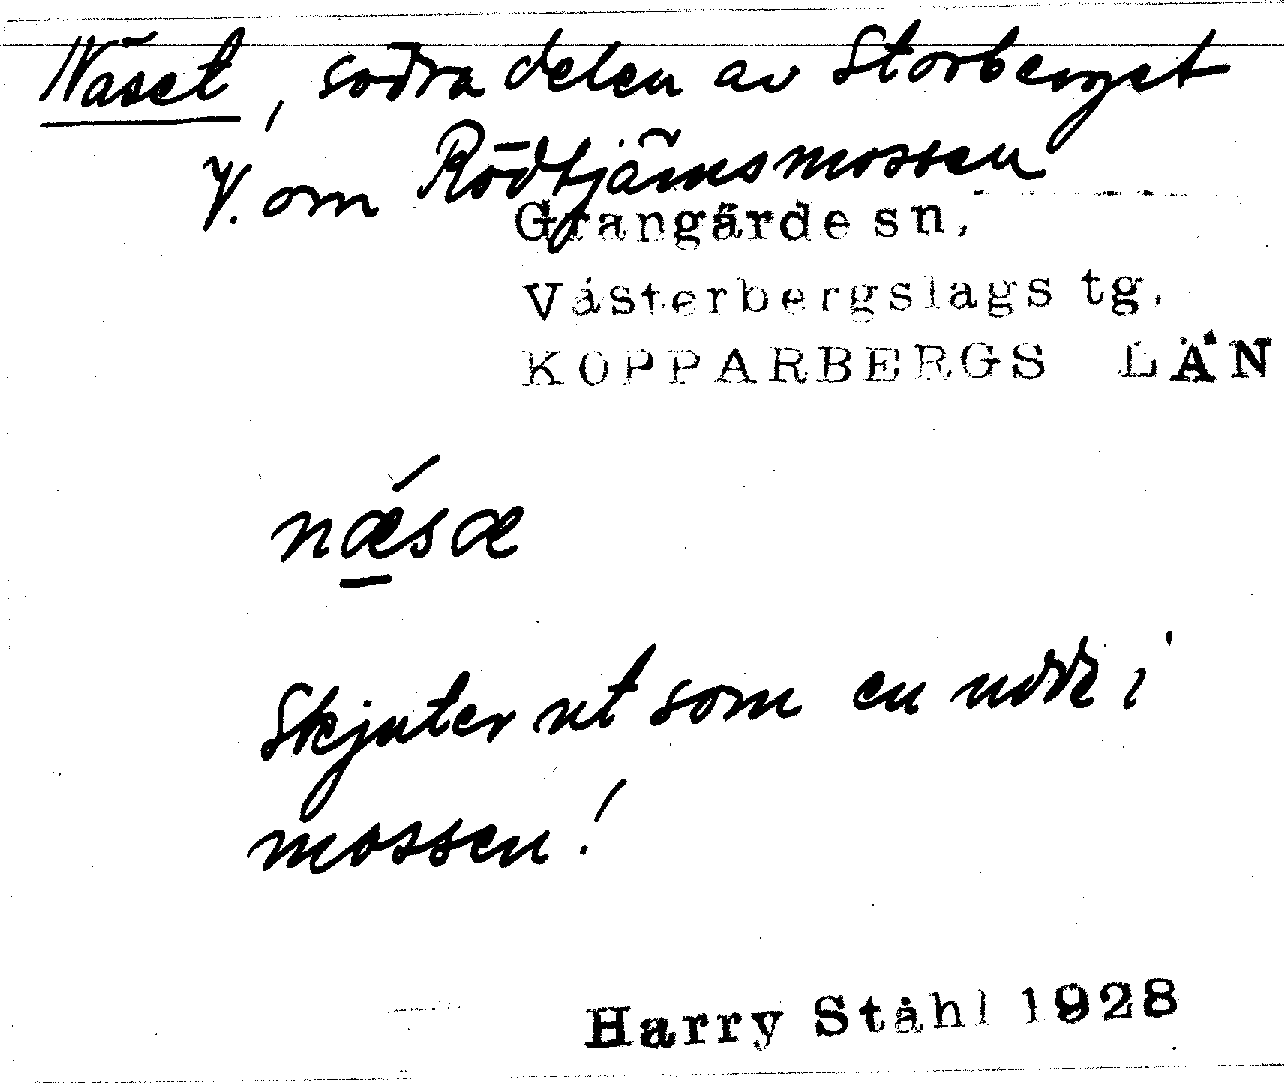 Näset, södra delen av Storberget
V. om Rödtjärnsmossen
Grangärde sn,
Västerbergslags tg.
KOPPARBERGS LÄN
nǽ̱sæ
Skjuter ut som en udde i
mossen!
Harry Ståhl 1928